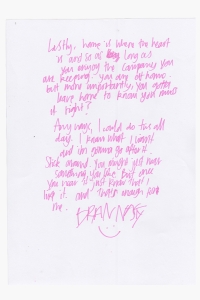 Lastly, home is when the heart
is and so as long as
you enjoy the company you
are keeping, you are at home.
but more importantly, you gotta
have hope to know you miss
it right?
Anyways, I could do this all
day. I know what I want
and im gonna go after it.
Stick around. You might just hear
something you like. But once
you hear it just know that I
like it. and that's enough for
me.